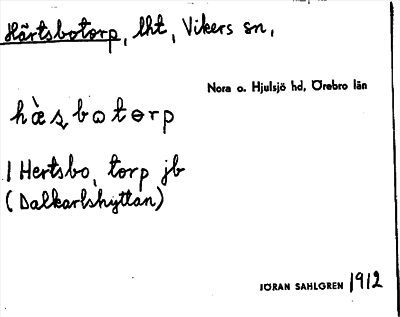 Härtsbotorp, lht, Vikers sn,
Nora o. Hjulsjö hd, Örebro län
hæ̀ʂbotɵrp
1 Hertsbo, torp jb
(Dalkarlshyttan)
JÖRAN SAHLGREN 1912